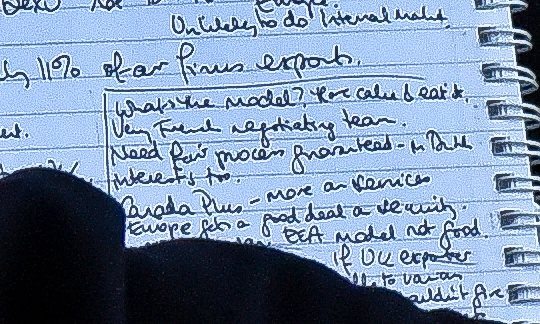 Europe.
Unlikely to do internal market.
11% of our firms exports.
What's the model? Have cake & eat it.
Very French negotiating team.
Need fair process guaranteed - in Dutch
interests too.
Canada Plus - more on services
Europe gets a good deal on security.
EEA model not good.
If UK exporter
to various